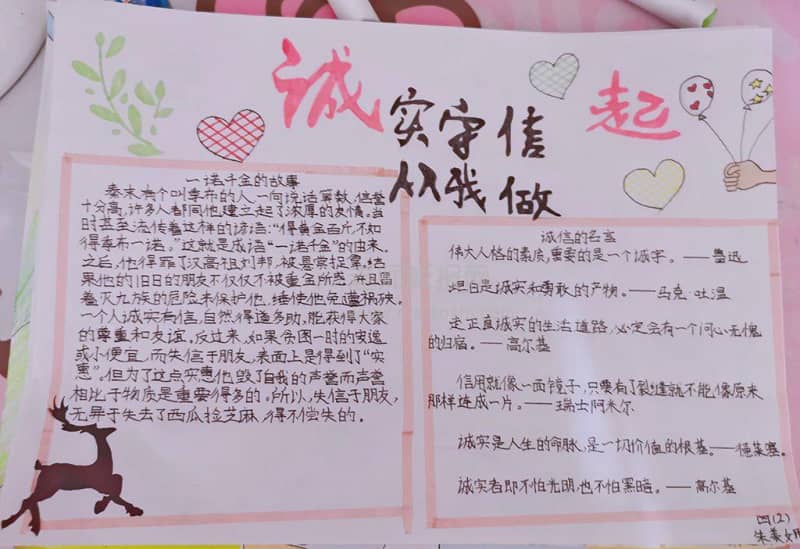 诚实守信
从我做起
一诺千金的故事
秦末有个叫季布的人,一向说话算数,信誉
十分高,许多人都同他建立起了浓厚的友情。当
时甚至流传着这样的谚语:“得黄金百斤,不如
得季布一诺。”这就是成语“一诺千金”的由来。
之后,他得罪了汉高祖刘邦,被悬赏捉拿。结
果他的旧日的朋友不仅仅不被重金所惑,并且冒
着灭九族的危险来保护他,继使他免遭祸殃。
一个人诚实有信,自然得道多助,能获得大家
的尊重和友谊。反过来,如果贪图一时的安逸
或小便宜,而失信于朋友,表面上是得到了“实
惠”。但为了这点实惠他毁了自我的声誉而声誉
相比于物质是重要得多的。所以,失信于朋友,
无异于失去了西瓜捡芝麻,得不偿失的。
诚信的名言
伟大人格的素质,重要的是一个诚字。——鲁迅
坦白是诚实和勇敢的产物。——马克·吐温
走正直诚实的生活道路,必定会有一个问心无愧
的归宿。——高尔基
信用就像一面镜子,只要有了裂缝就不能像原来
那样连成一片。——瑞士阿米尔
诚实是人生的命脉,是一切价值的根基。——德莱赛。
诚实者即不怕光明,也不怕黑暗。——高尔基
四(2)
朱美